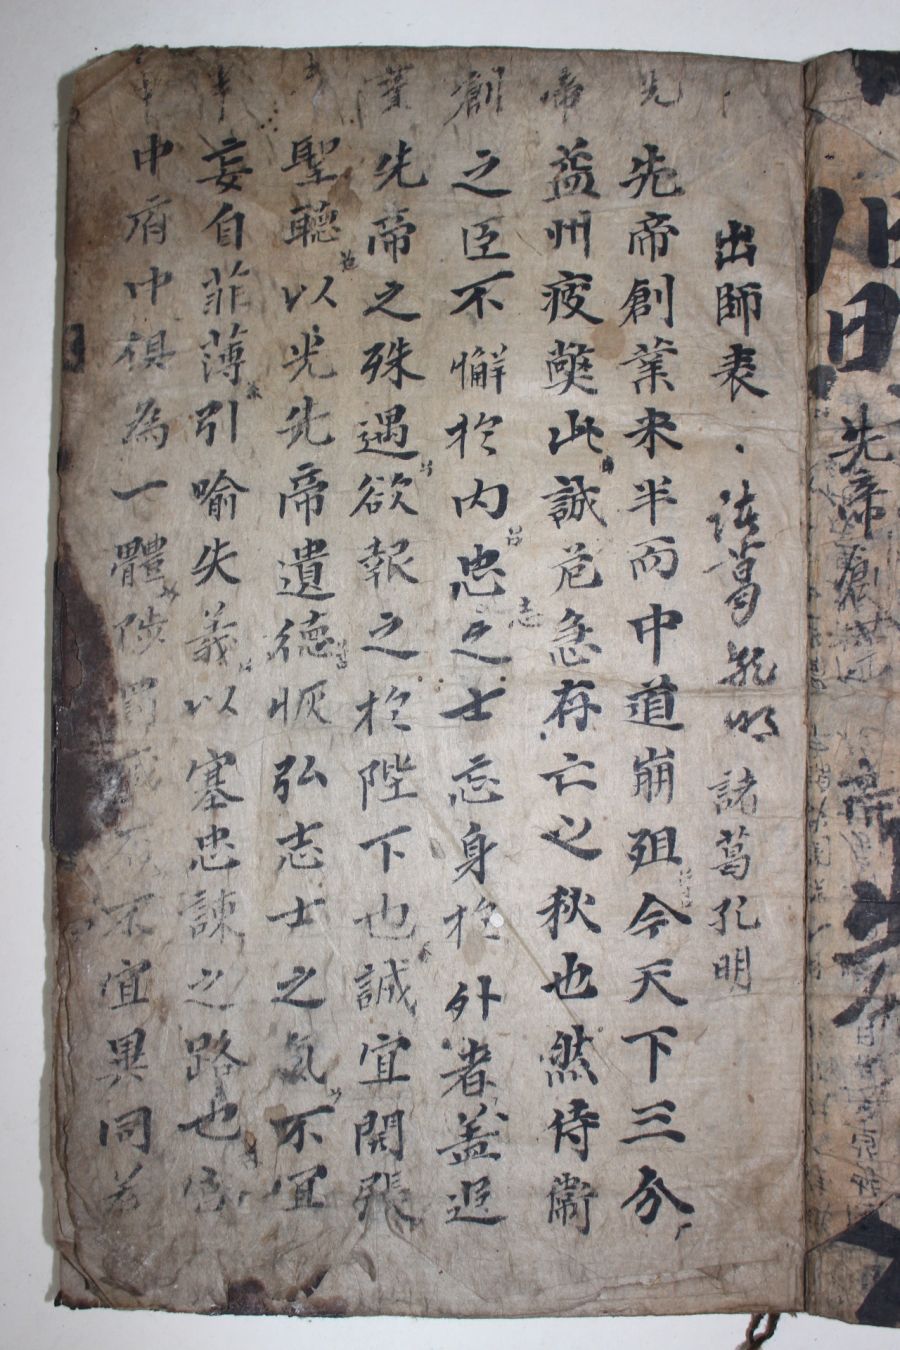 先帝創業
出師表、諸葛孔明 諸葛孔明
先帝創業未半而中道崩殂今天下三分
益州疲弊此誠危急存亡之秋也然侍衛
之臣不懈於内忠之士忘身於外者盖追
志
先帝之殊遇欲報之於陛下也誠宜開張
聖聽以光先帝遺德恢弘志士之氣不宜
妄自菲薄引喻失義以塞忠諫之路也宮
中府中俱為一體陟罰臧否不宜異同若